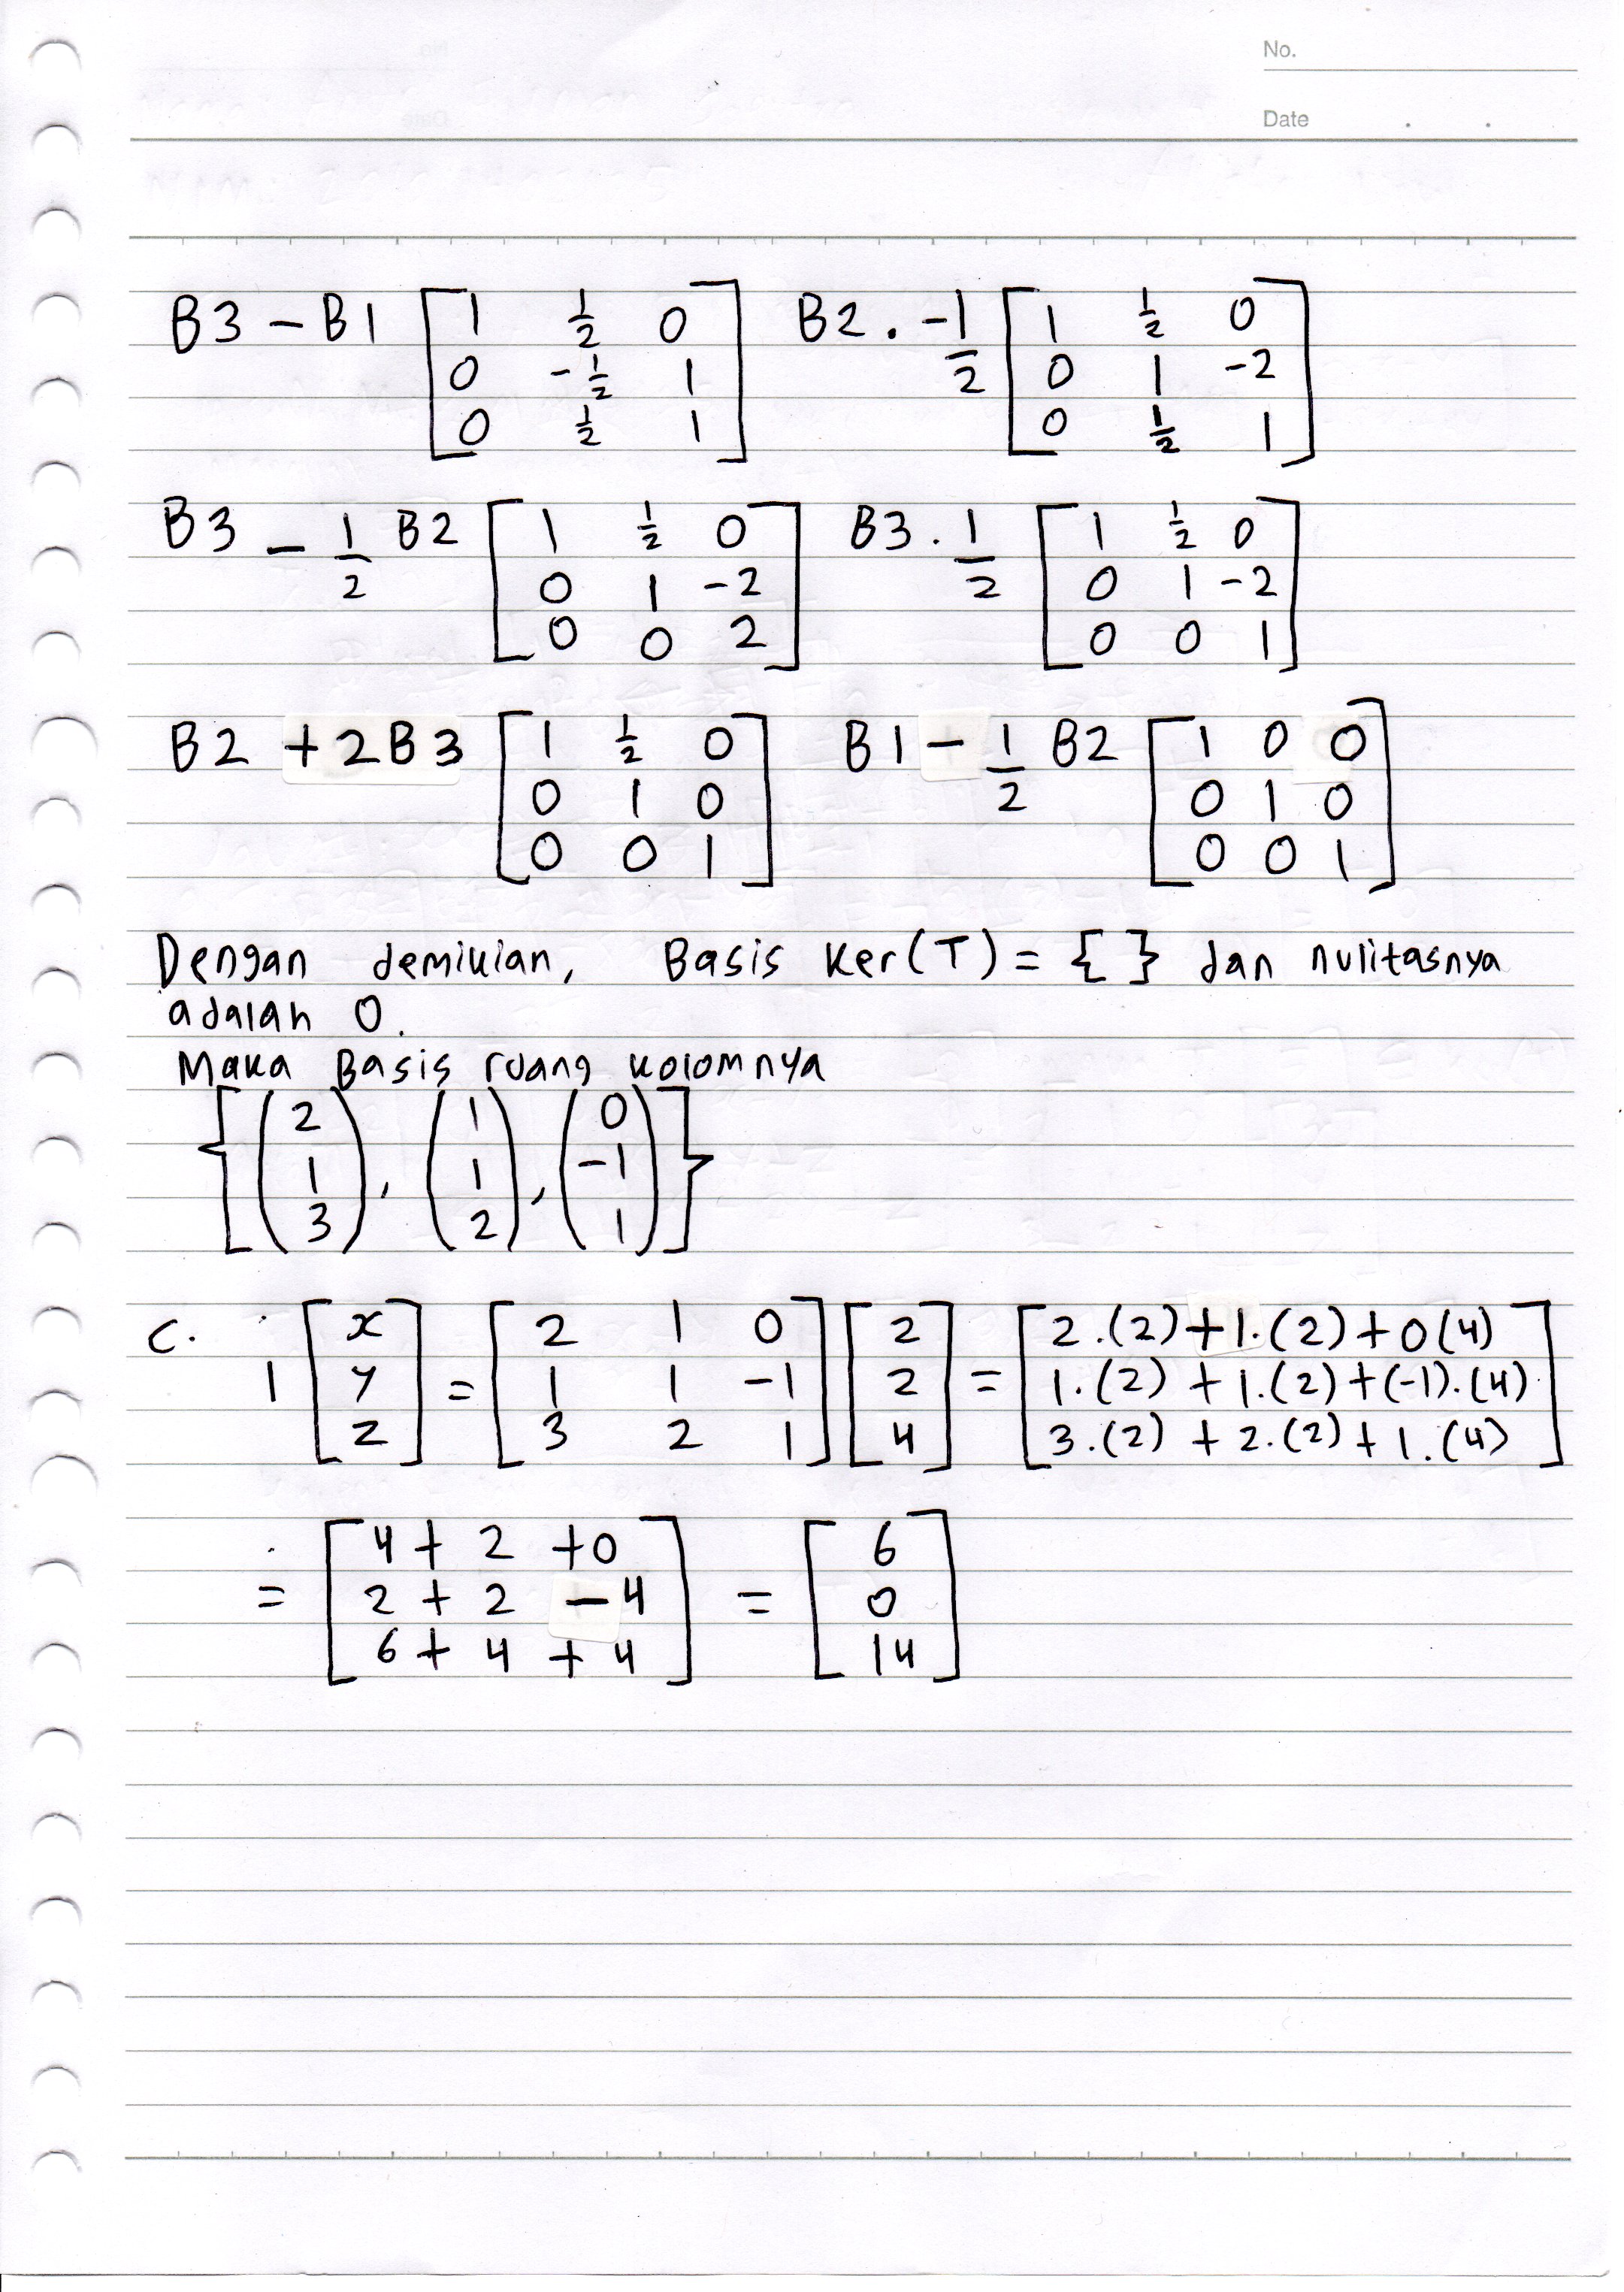 No.
Date . .
B3 - B1 [1 1/2 0; 0 -1/2 1; 0 1/2 1] B2 . -1/2 [1 1/2 0; 0 1 -2; 0 1/2 1]
B3 - 1/2 B2 [1 1/2 0; 0 1 -2; 0 0 2] B3 . 1/2 [1 1/2 0; 0 1 -2; 0 0 1]
B2 + 2B3 [1 1/2 0; 0 1 0; 0 0 1] B1 - 1/2 B2 [1 0 0; 0 1 0; 0 0 1]
Dengan demikian, Basis Ker(T) = { } dan nulitasnya
adalah 0.
Maka Basis ruang kolomnya
{(2; 1; 3), (1; 1; 2), (0; -1; 1)}
c. 1 [x; y; z] = [2 1 0; 1 1 -1; 3 2 1] [2; 2; 4] = [2.(2) + 1.(2) + 0(4); 1.(2) + 1.(2) + (-1).(4); 3.(2) + 2.(2) + 1.(4)]
= [4 + 2 + 0; 2 + 2 - 4; 6 + 4 + 4] = [6; 0; 14]